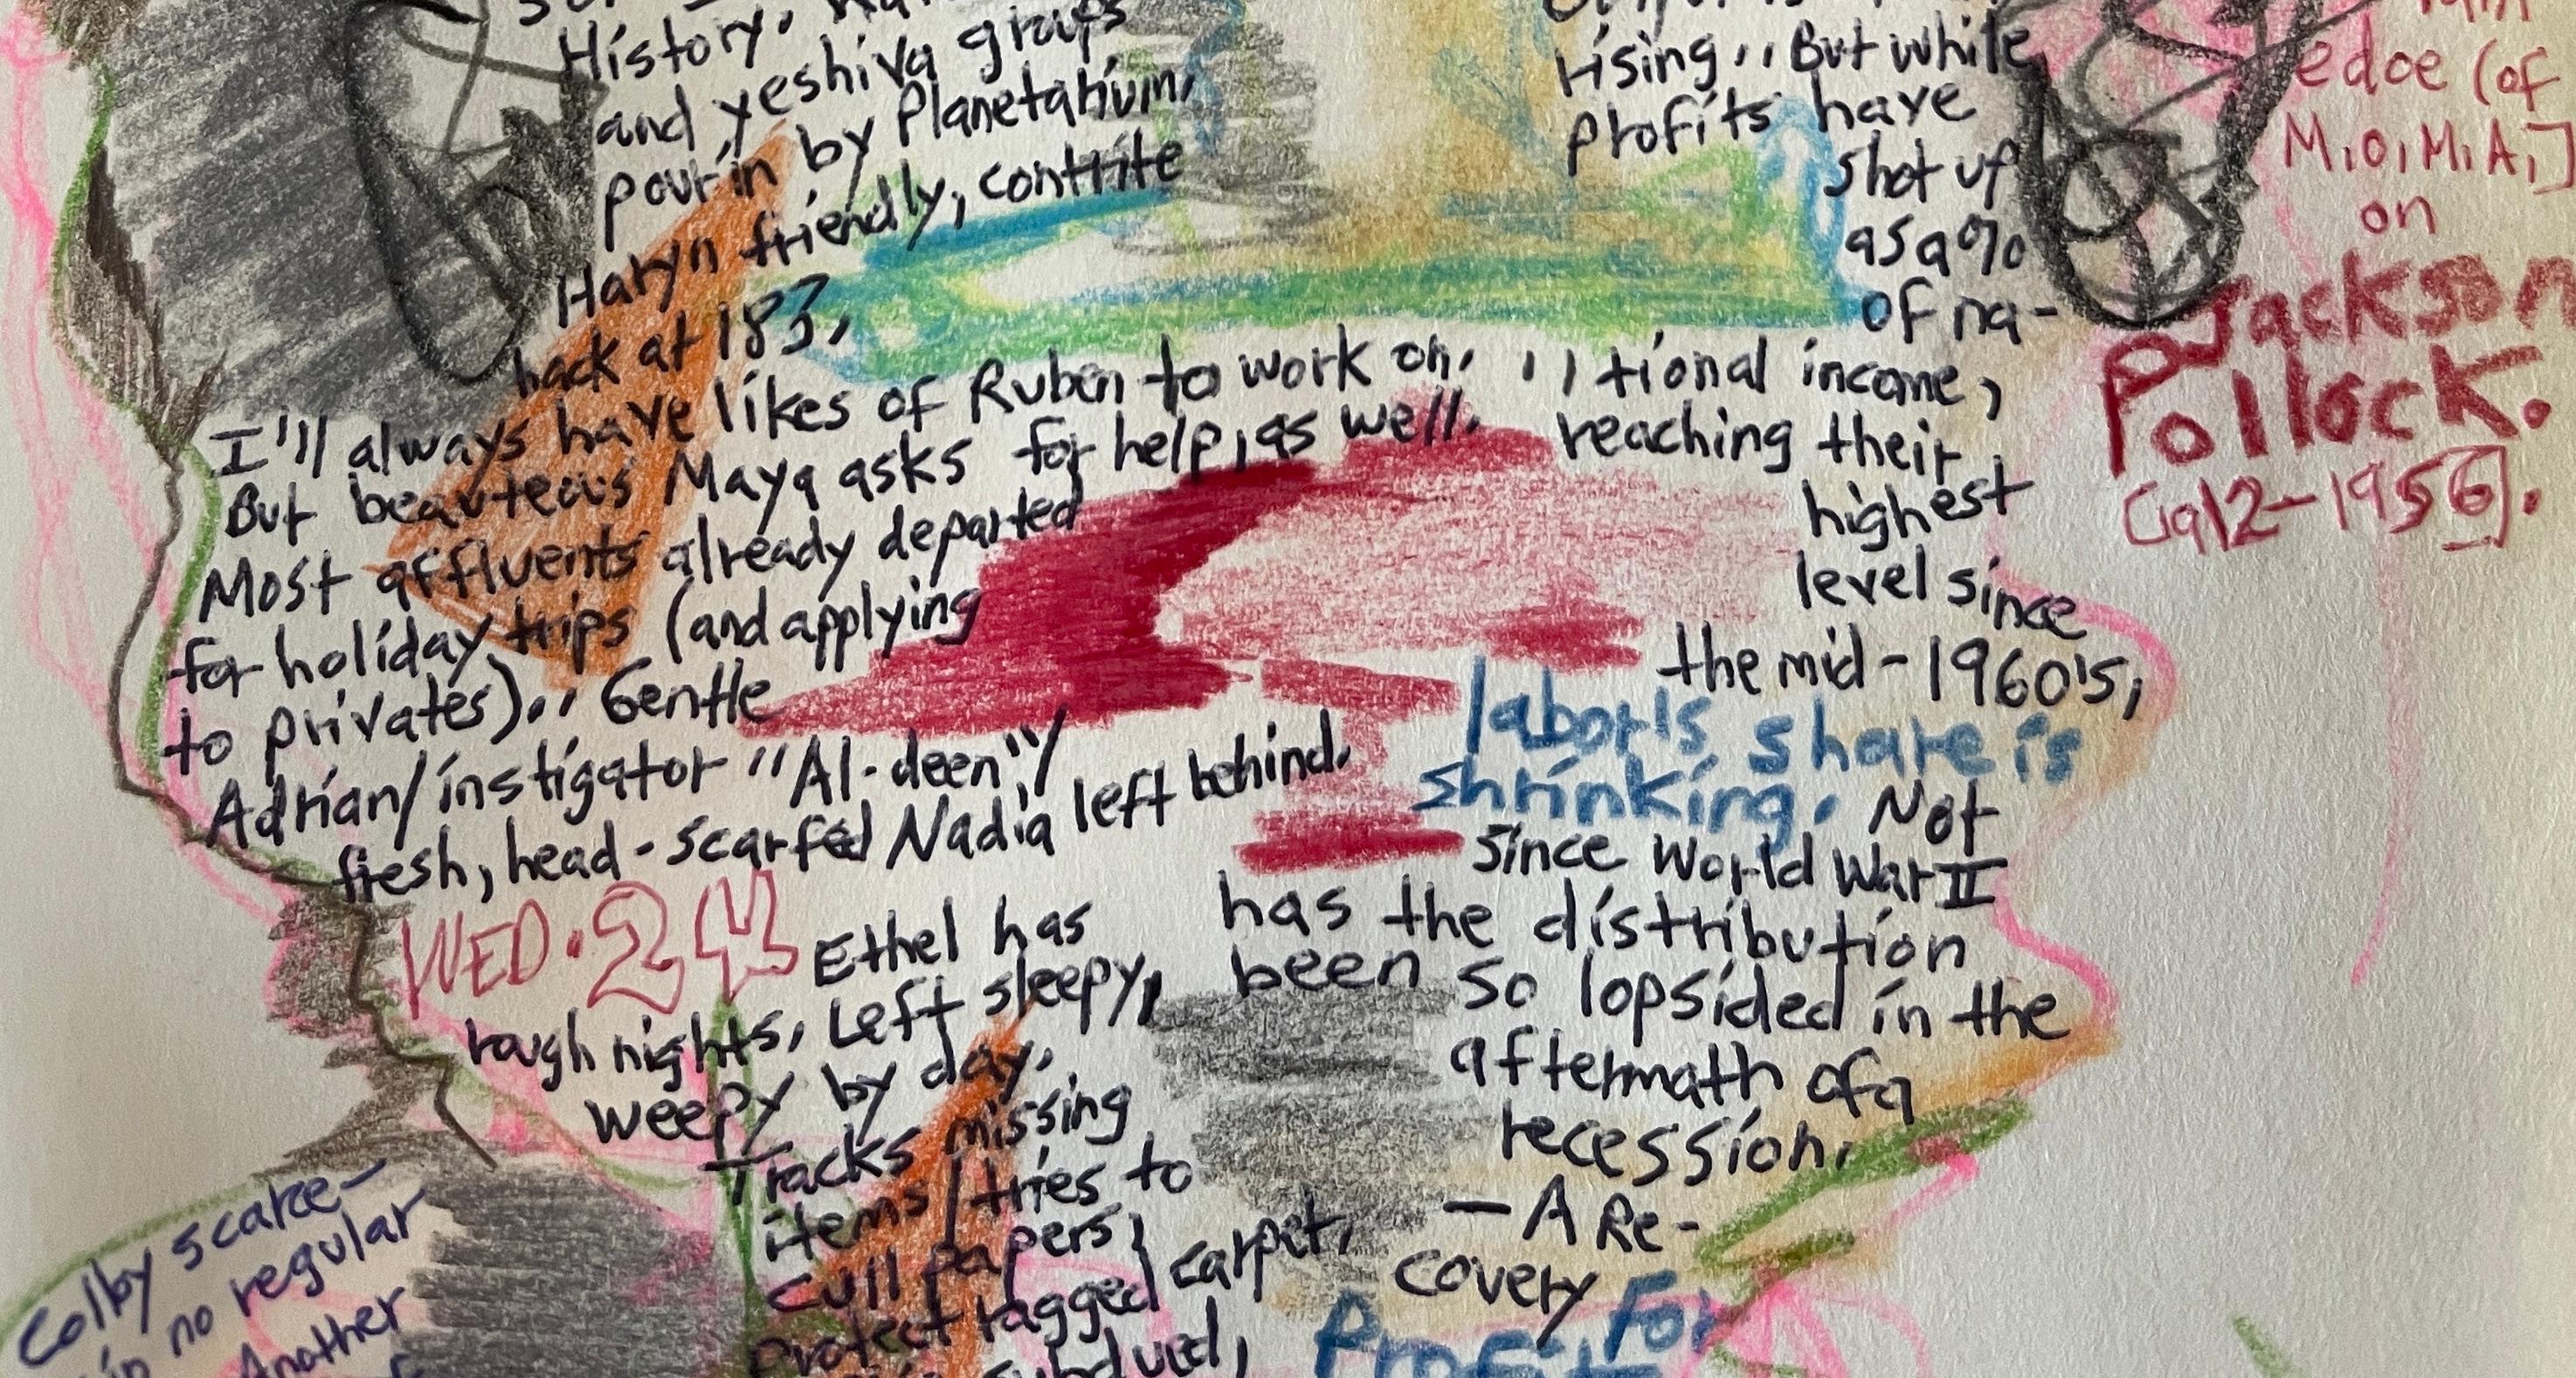 History,
and yeshiva groups
pour in by Planetarium,
Haryn friendly, contrite
back at 183,
I'll always have likes of Ruben to work on,
But beauteous Maya asks for help, as well.
Most affluents already departed
for holiday trips (and applying
to privates)., Gentle
Adrian/instigator "Al-deen"/
fresh, head-scarfed Nadia left behind.
WED. 24 Ethel has
rough nights, Left sleepy,
weepy by day,
Tracks missing
items/tries to
cull papers,
protect ragged carpet,
subdued,
Colby scarce-
in no regular
Another
rising,, But while
Profits have
shot up
as a %
of na-
,, tional income,
reaching their
highest
level since
the mid-1960's,
labor's share is
shrinking. Not
since World War II
has the distribution
been so lopsided in the
aftermath of a
recession,
- A Re-
covery
For
Profits
edge (of
M,O,M,A,]
on
Jackson
Pollock.
[1912-1956].